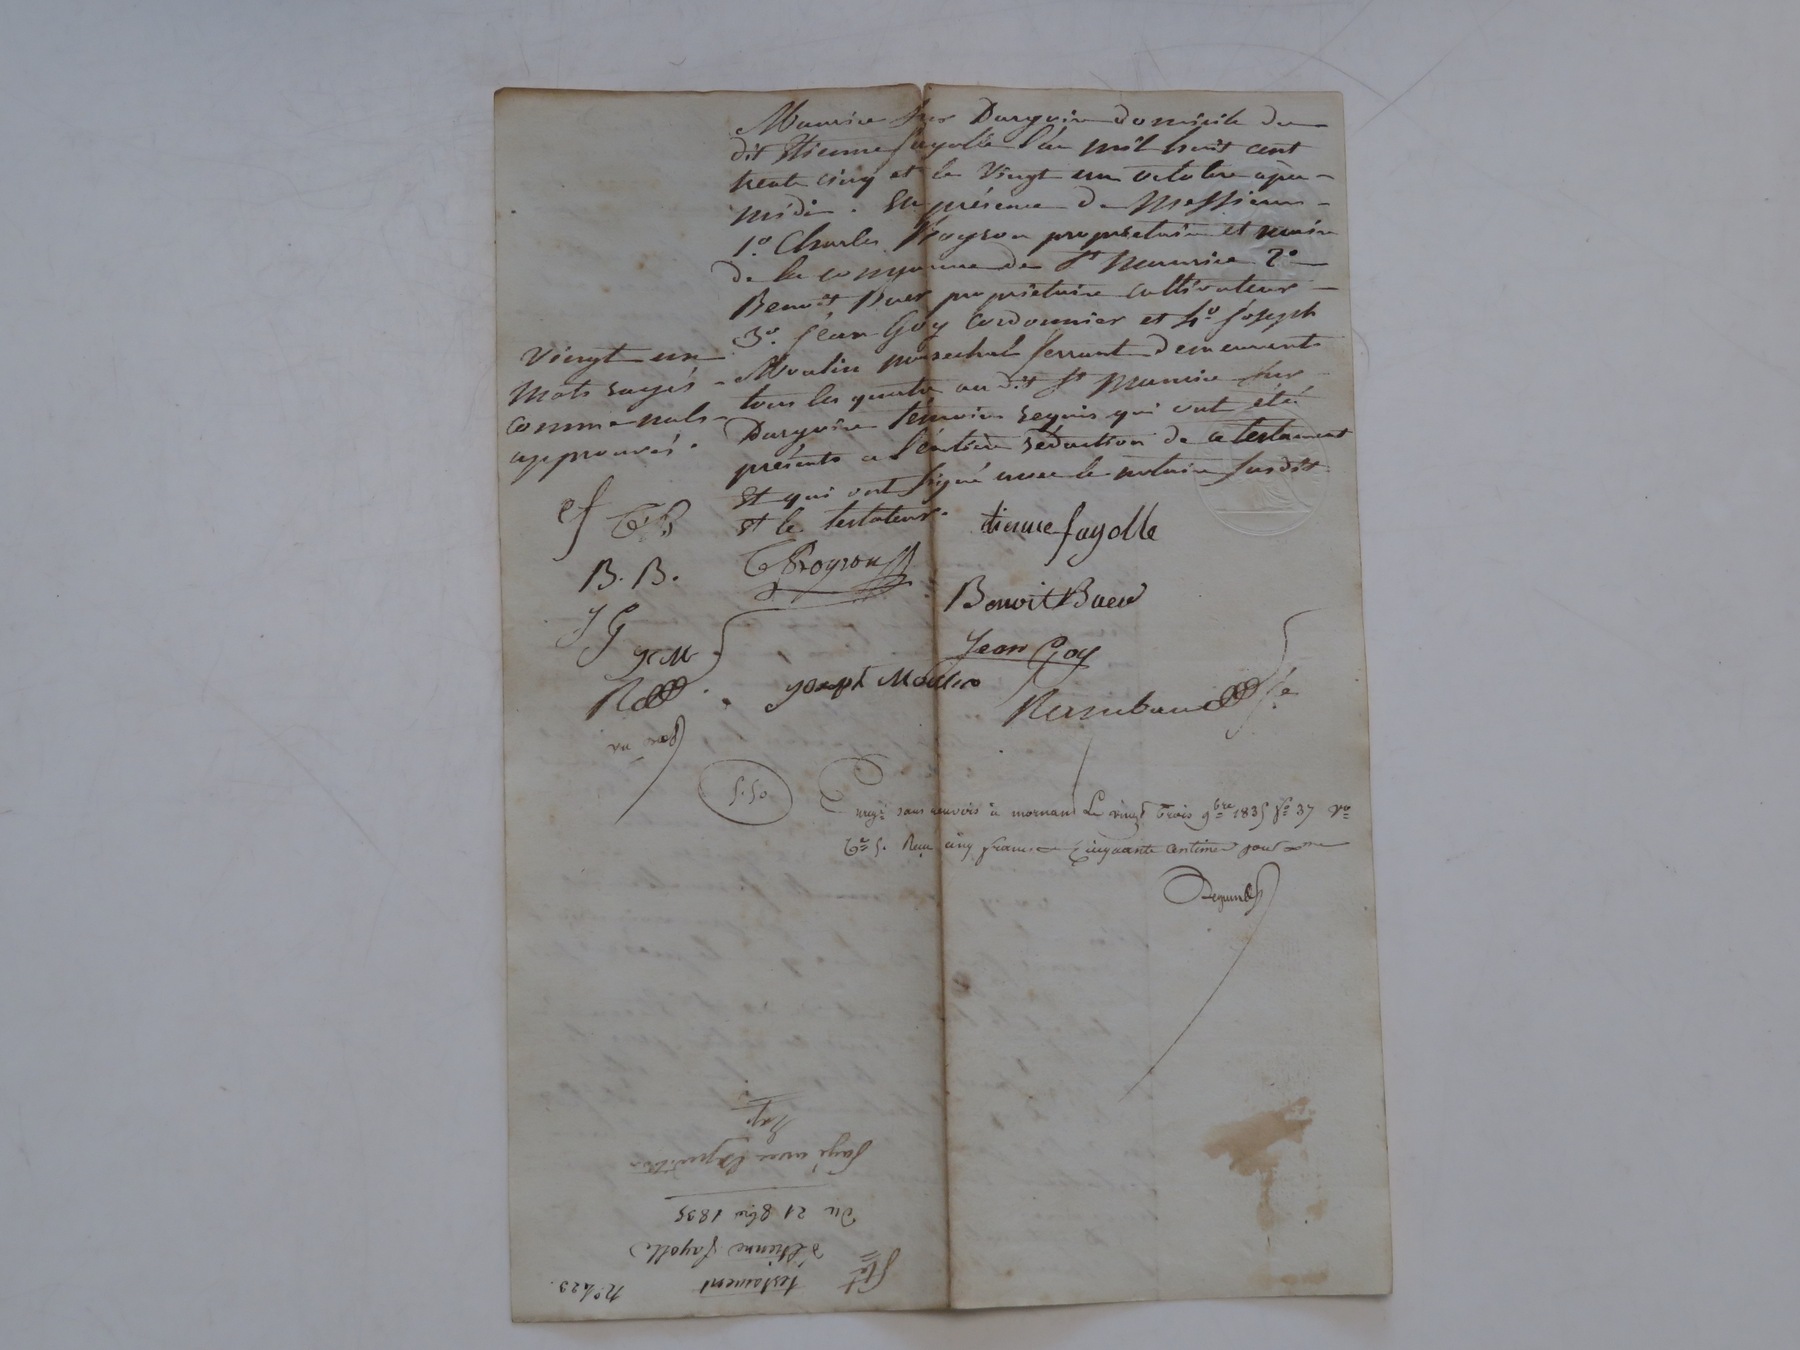 Maurice sur Dargoire domicile du
dit Etienne fayolle l'an mil huit cent
trente cinq et le vingt un octobre après
midi. En présence de Messieurs
1.º Charles Proyron propriétaire et maire
de la commune de St Maurice 2º
Benoit Buer propriétaire cultivateur
3.º Jean Goy Cordonnier et 4.º Joseph
Moulin marechal ferrant demeurants
tous les quatre au dit St Maurice sur
Dargoire témoins requis qui ont été
présents a l'entière rédaction de ce testament
et qui ont signé avec le notaire susdit
et le testateur.
Vingt un
mots rayés
comme nuls
approuvés.
ef
B. B.
J G
JM
etienne fayolle
Proyron
Benoit Buer
Jean Goy
joseph Moulin
5.50
Enregé sans renvois à mornant Le vingt trois 9bre 1835 fº 37 Vº
Ce 5. Reçu cinq francs Cinquante centimes pour
Nº 423.
testament
d'Etienne fayolle
Du 21 8bre 1835
payé avec Expédition